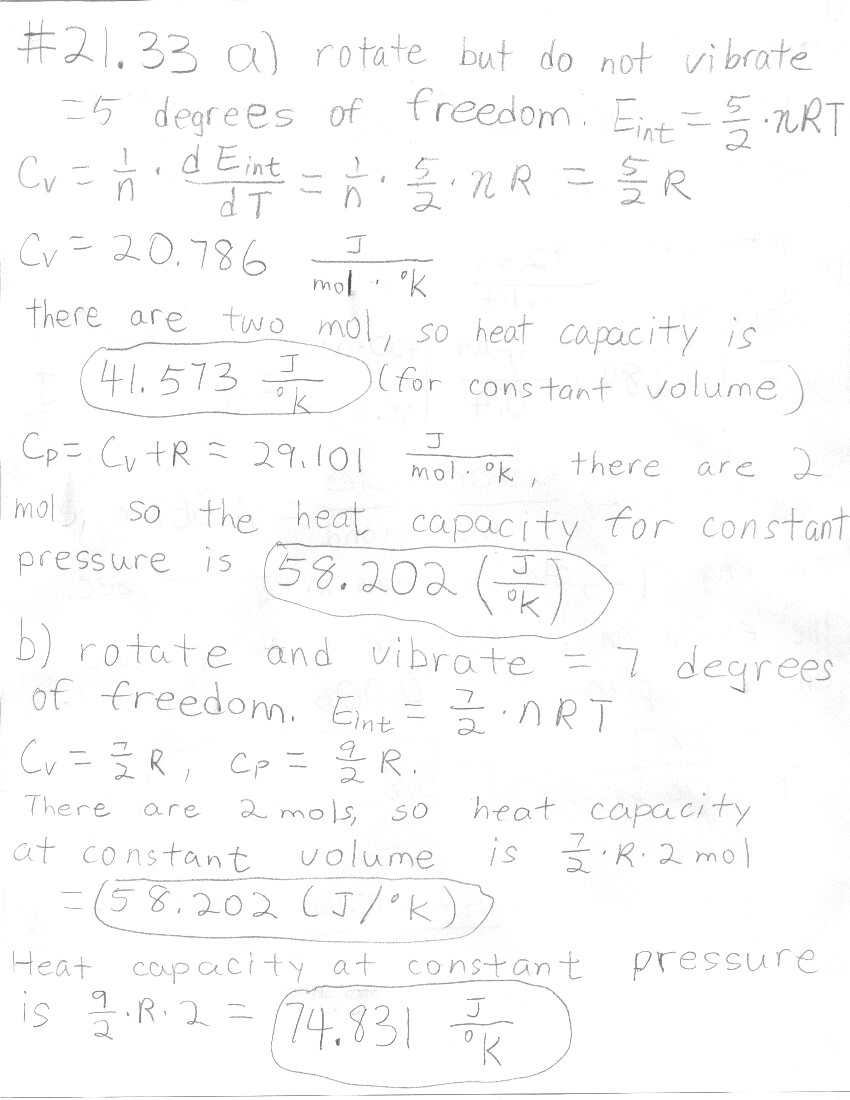 #21.33 a) rotate but do not vibrate
=5 degrees of freedom. E_int = 5/2 · nRT
C_v = 1/n · dE_int/dT = 1/n · 5/2 · nR = 5/2 R
C_v = 20.786 J/(mol · °K)
there are two mol, so heat capacity is
41.573 J/°K (for constant volume)
C_p = C_v + R = 29.101 J/(mol · °K), there are 2
mols, so the heat capacity for constant
pressure is 58.202 (J/°K)
b) rotate and vibrate = 7 degrees
of freedom. E_int = 7/2 · nRT
C_v = 7/2 R, C_p = 9/2 R.
There are 2 mols, so heat capacity
at constant volume is 7/2 · R · 2 mol
= 58.202 (J/°K)
Heat capacity at constant pressure
is 9/2 · R · 2 = 74.831 J/°K